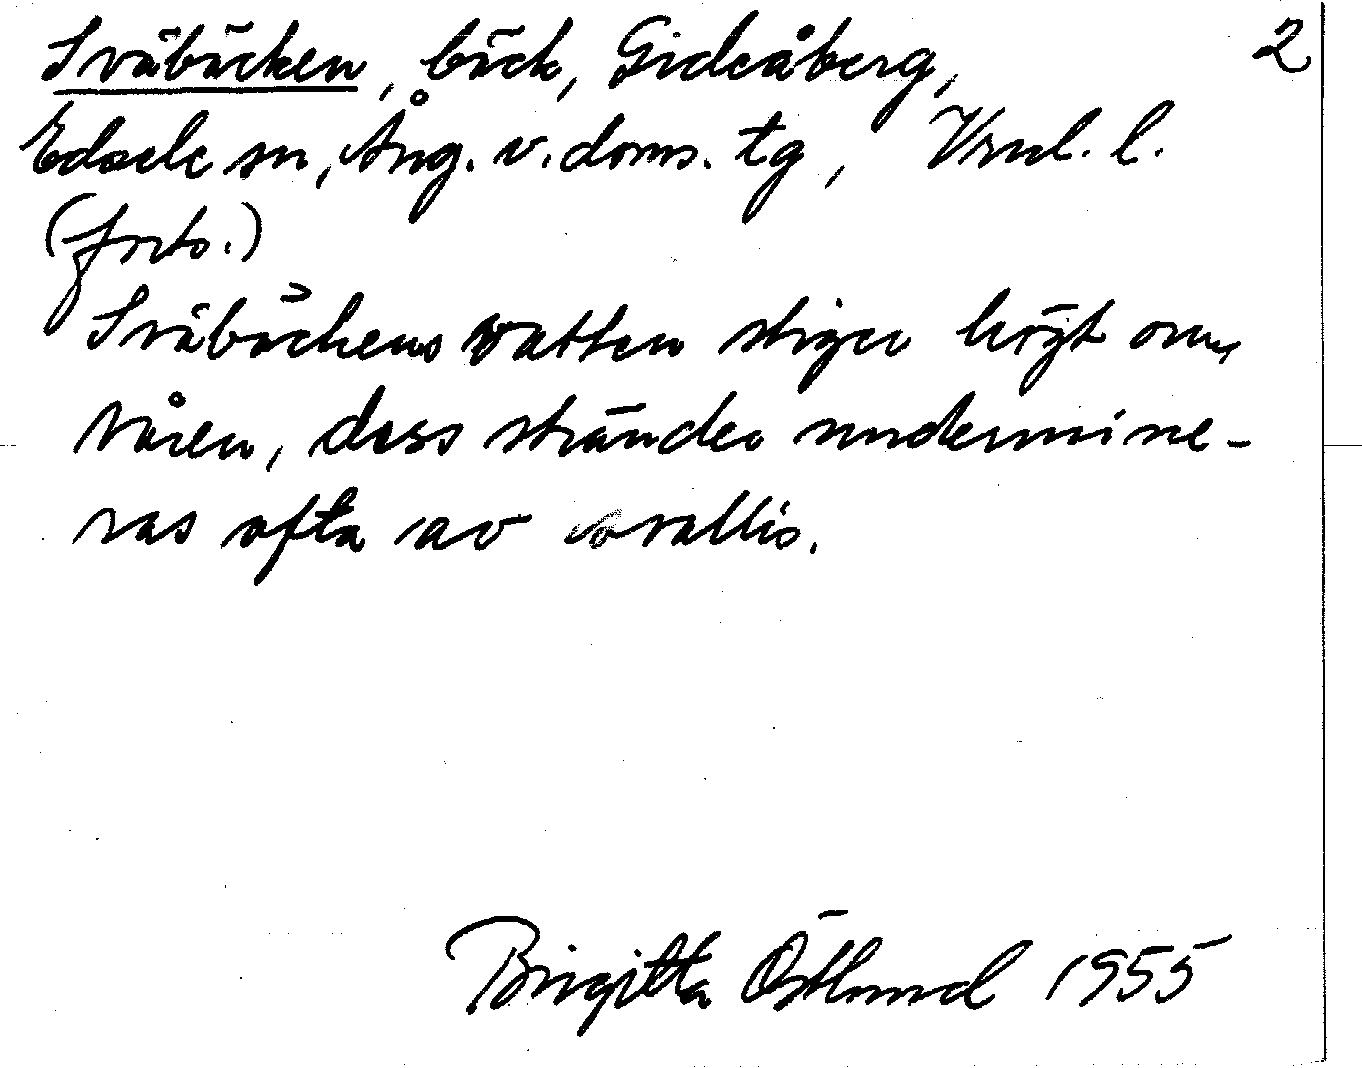 Sväbäcken, bäck, Gideåberg, 2
Edsele sn, Ång. v. doms. tg, Vrnl. l.
(forts.)
Sväbäckens vatten stiger högt om
våren, dess stränder undermine-
ras ofta av svallis.
Birgitta Östlund 1955